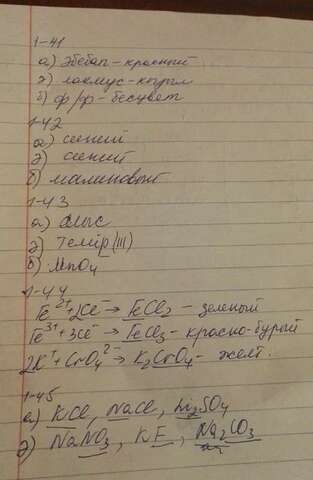 1-41
а) эвебап-красный
ә) лакмус-қызыл
б) ф/ф-бесцвет
1-42
а) синий
ә) синий
б) малиновый
1-43
а) Мыс
ә) Темір(III)
б) MnO4
1-44
Fe²⁺+2Cl⁻→ FeCl₂-зеленый
Fe³⁺+3Cl⁻→ FeCl₃-красно-бурый
2K⁺+CrO₄²⁻→ K₂CrO₄-желт.
1-45
а) KCl, NaCl, Li₂SO₄
ә) NaNO₃, KF, Na₂CO₃